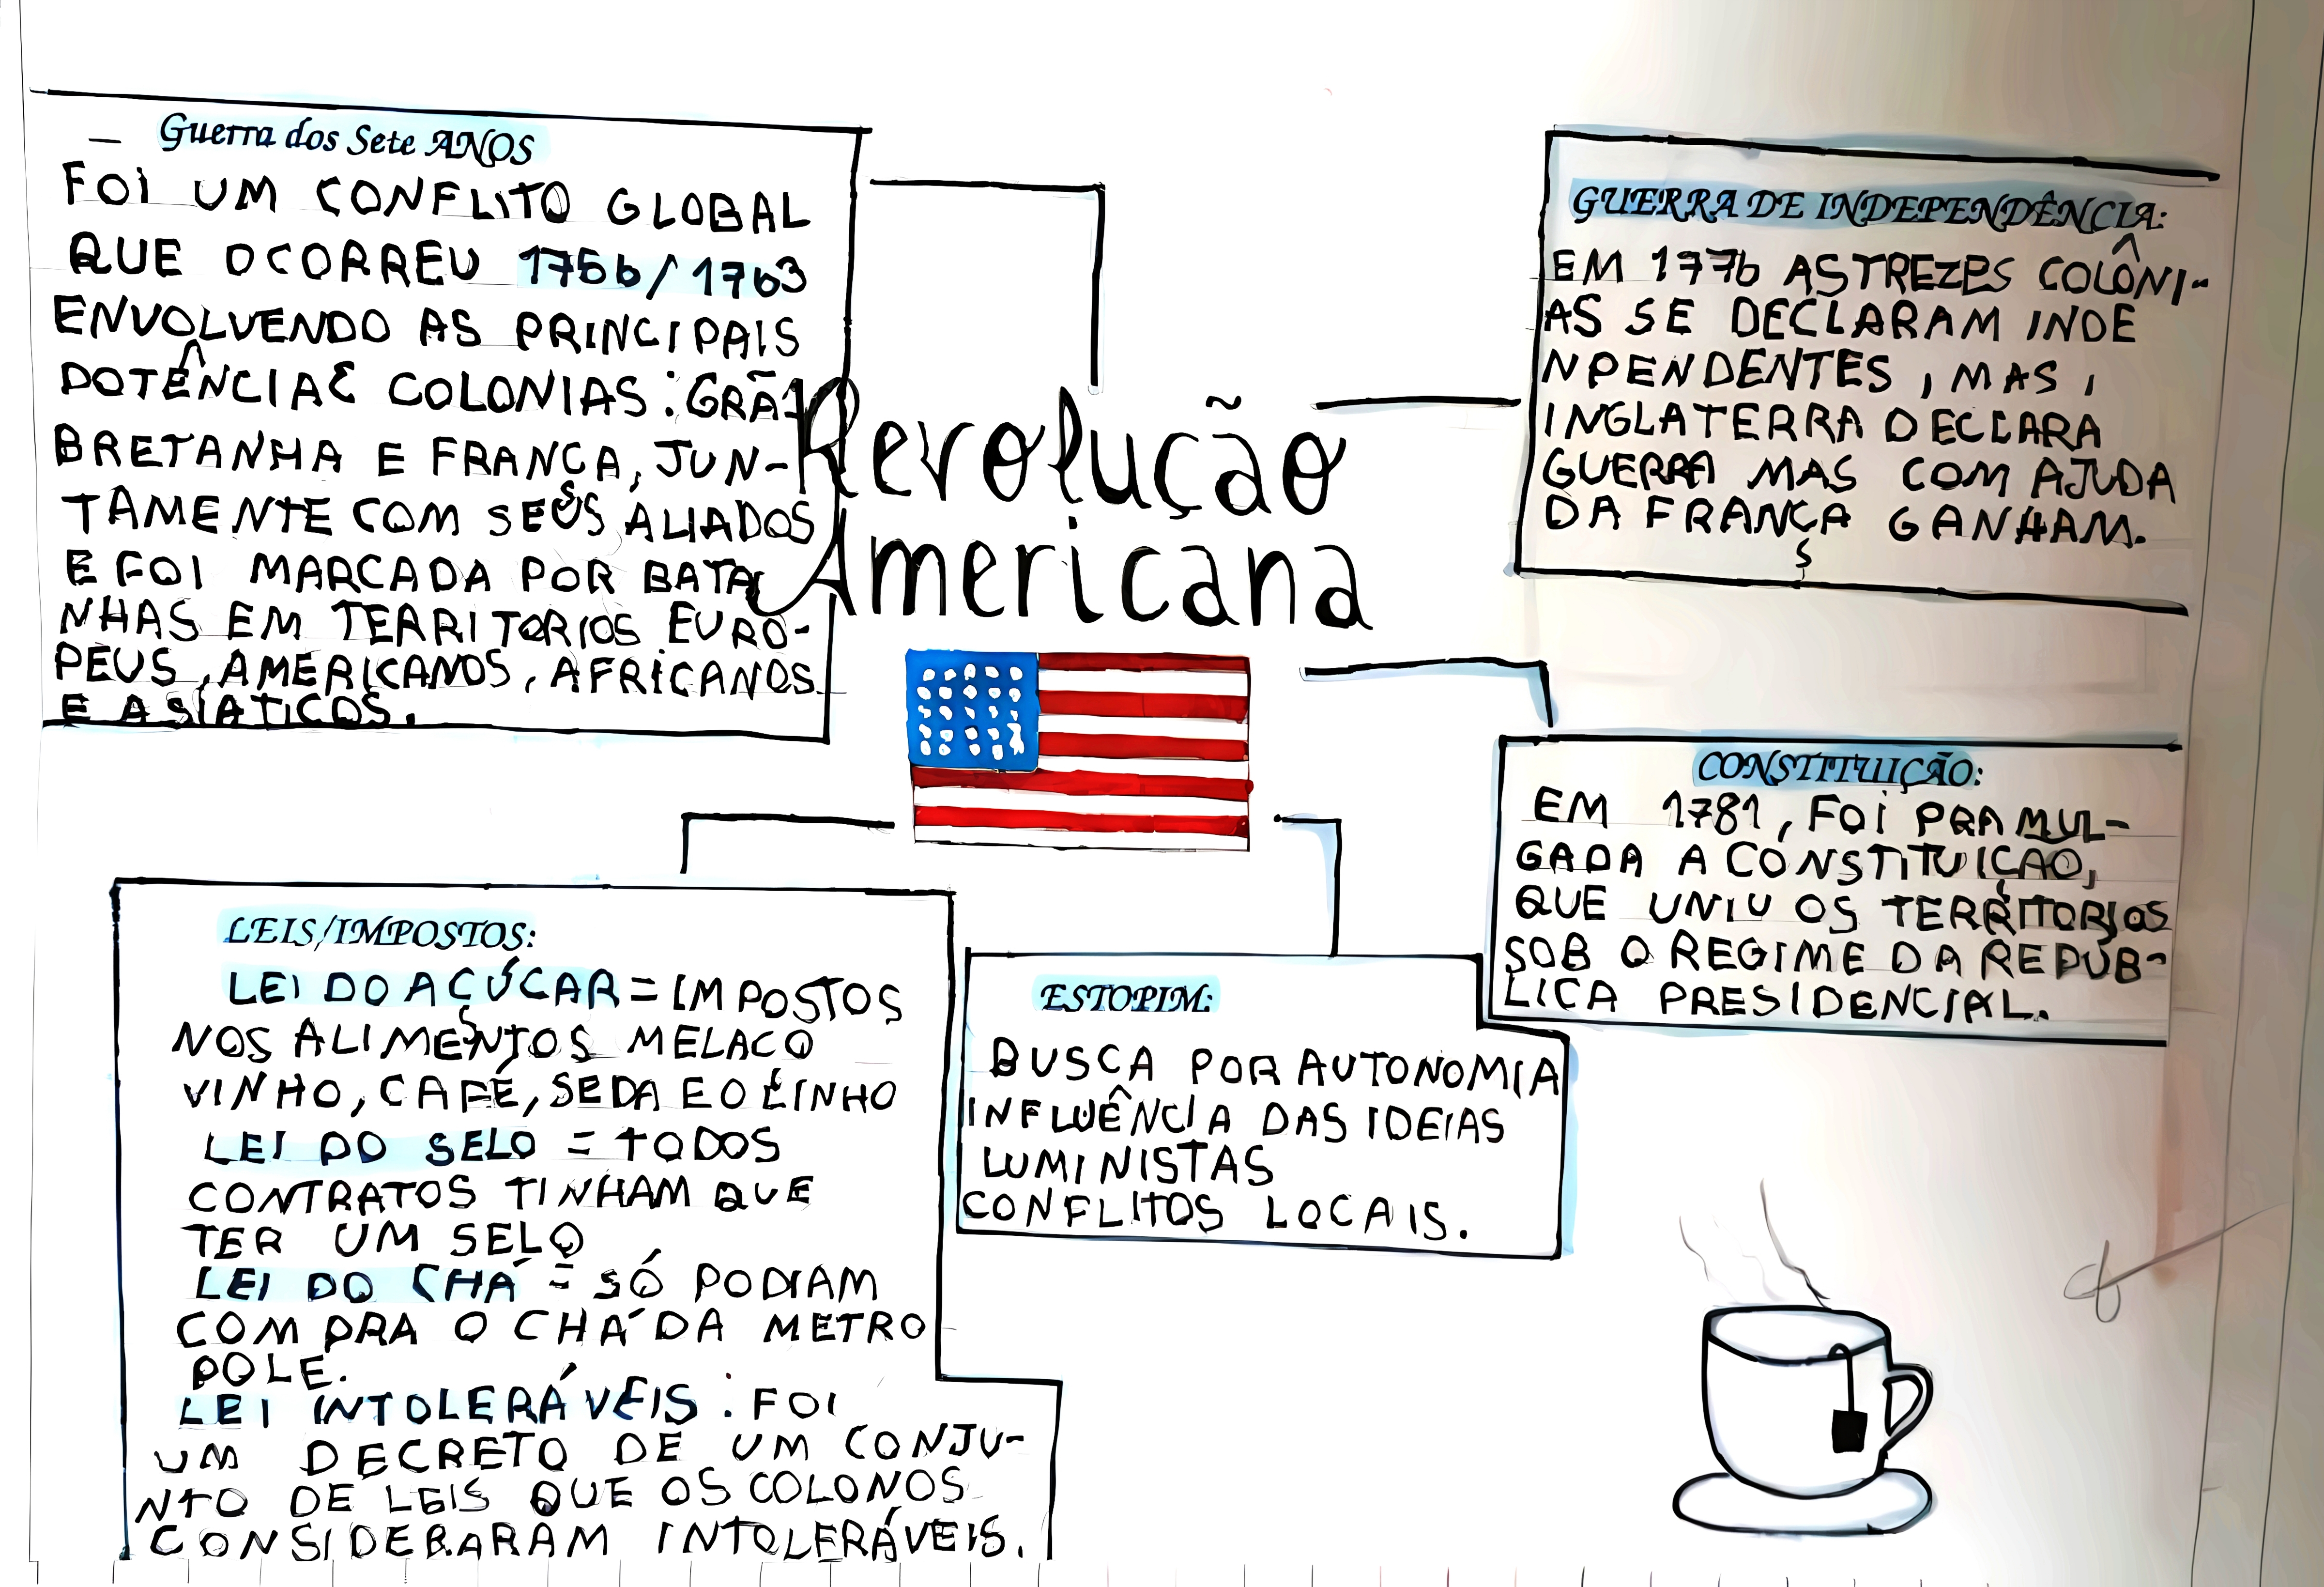 Guerra dos Sete ANOS
FOI UM CONFLITO GLOBAL
QUE OCORREU 1756/1763
ENVOLVENDO AS PRINCIPAIS
POTÊNCIAS COLONIAS: GRÃ-
BRETANHA E FRANÇA, JUN-
TAMENTE COM SEUS ALIADOS
E FOI MARCADA POR BATA
NHAS EM TERRITORIOS EURO-
PEUS, AMERICANOS, AFRICANOS
E ASIATICOS.
Revolução
Americana
GUERRA DE INDEPENDÊNCIA:
EM 1776 AS TREZES COLÔNI-
AS SE DECLARAM INDE
NPENDENTES, MAS,
INGLATERRA DECLARA
GUERRA MAS COM AJUDA
DA FRANÇA GANHAM.
CONSTITUIÇÃO:
EM 1781, FOI PRAMUL-
GADA A CONSTITUIÇAO,
QUE UNIU OS TERRITORIOS
SOB O REGIME DA REPÚB-
LICA PRESIDENCIAL.
LEIS/IMPOSTOS:
LEI DO AÇÚCAR = IMPOSTOS
NOS ALIMENTOS MELACO
VINHO, CAFÉ, SEDA E O LINHO
LEI DO SELO = TODOS
CONTRATOS TINHAM QUE
TER UM SELO
LEI DO CHÁ = SÓ PODIAM
COMPRA O CHÁ DA METRO
POLE.
LEI INTOLERÁVEIS: FOI
UM DECRETO DE UM CONJU-
NTO DE LEIS QUE OS COLONOS
CONSIDERARAM INTOLERÁVEIS.
ESTOPIM:
BUSCA POR AUTONOMIA
INFLUÊNCIA DAS IDEIAS
LUMINISTAS
CONFLITOS LOCAIS.